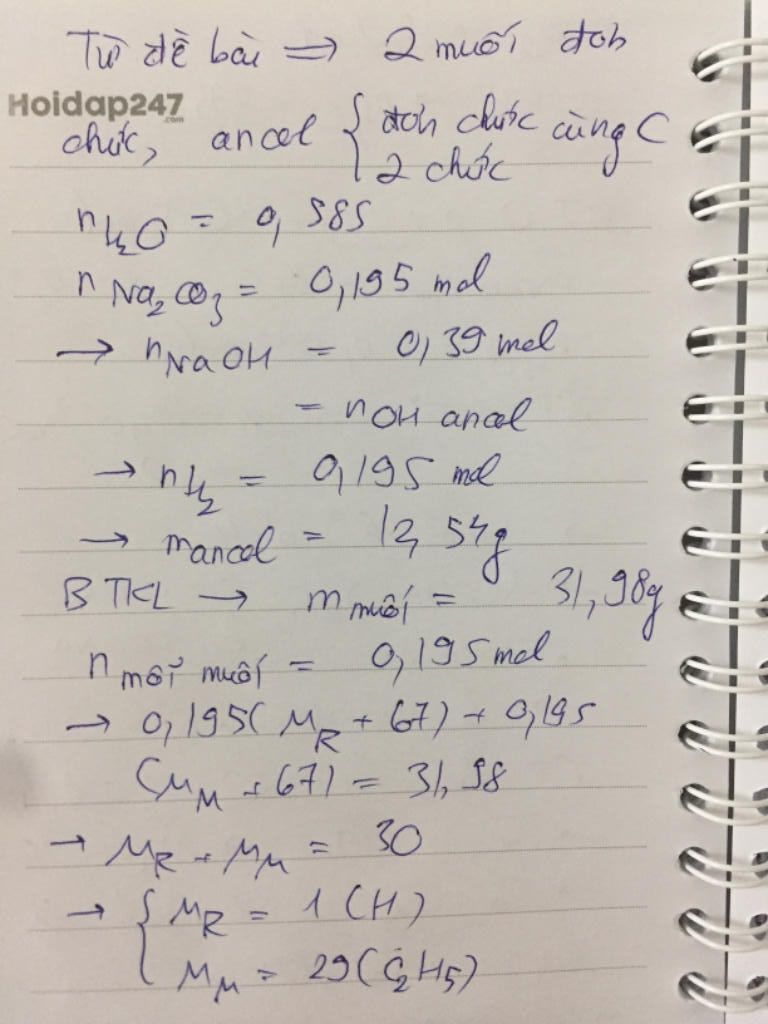 Từ đề bài ⇒ 2 muối đơn
Hoidap247
.com
chức, ancol { đơn chức cùng C
2 chức
nH2O = 0,585
nNa2CO3 = 0,195 mol
→ nNaOH = 0,39 mol
= nOH ancol
→ nH2 = 0,195 mol
→ mancol = 12,54g
BTKL → mmuối = 31,98g
nmỗi muối = 0,195 mol
→ 0,195(MR + 67) + 0,195
(MM + 67) = 31,98
→ MR + MM = 30
→ { MR = 1 (H)
MM = 29 (C2H5)